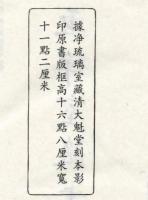 據净琉璃室藏清大魁堂刻本影
印原書版框高十六點八厘米寬
十一點二厘米